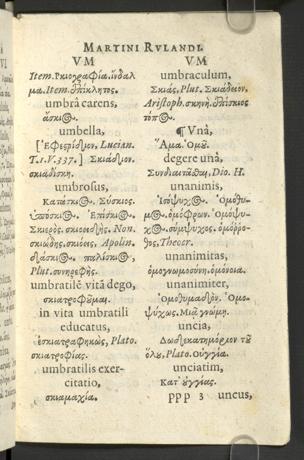 MARTINI RVLANDI.
VM
Item. σκιογραφία. ἴνδαλ
μα. Item. ἐπίκλητος.
umbrâ carens,
ἄσκιος.
umbella,
[Ἐφεςρίδιον, Lucian.
T.1.V.337.] Σκιάδιον.
σκιαδίσκη.
umbrosus,
Κατάσκιος. Σύσκιος.
ὑπόσκιος. Ἐπίσκιος.
Σκιερός. σκιοειδής. Non.
σκιώδης. σκιόεις, Apolin.
παλίσκιος,
Plut. συνηρεφής.
umbratilē vitā dego,
σκιατροφοῦμαι.
in vita umbratili
educatus,
ἐσκιατραφηκώς, Plato.
σκιατροφίας.
umbratilis exer-
citatio,
σκιαμαχία.
VM
umbraculum,
Σκιάς, Plut. Σκιάδειον,
Aristoph. σκηνή. ἐπίσκιος
τόπος.
¶ Vnà,
Ἅμα. Ὁμοῦ.
degere unà,
Συνδιαιτᾶσθαι, Dio. H.
unanimis,
Ἰσόψυχος. Ὁμόθυ-
μος. ὁμόφρων. Ὁμόψυ-
χος. σύμψυχος. ὁμόῤῥο-
θος, Theocr.
unanimitas,
ὁμογνωμοσύνη. ὁμόνοια.
unanimiter,
Ὁμοθυμαδόν. Ὁμο-
ψύχως. Μιᾷ γνώμῃ.
uncia,
Δωδεκατημόριον τοῦ
ὅλου, Plato. οὐγγία.
unciatim,
Κατ᾽ οὐγγίας.
ppp 3 uncus,